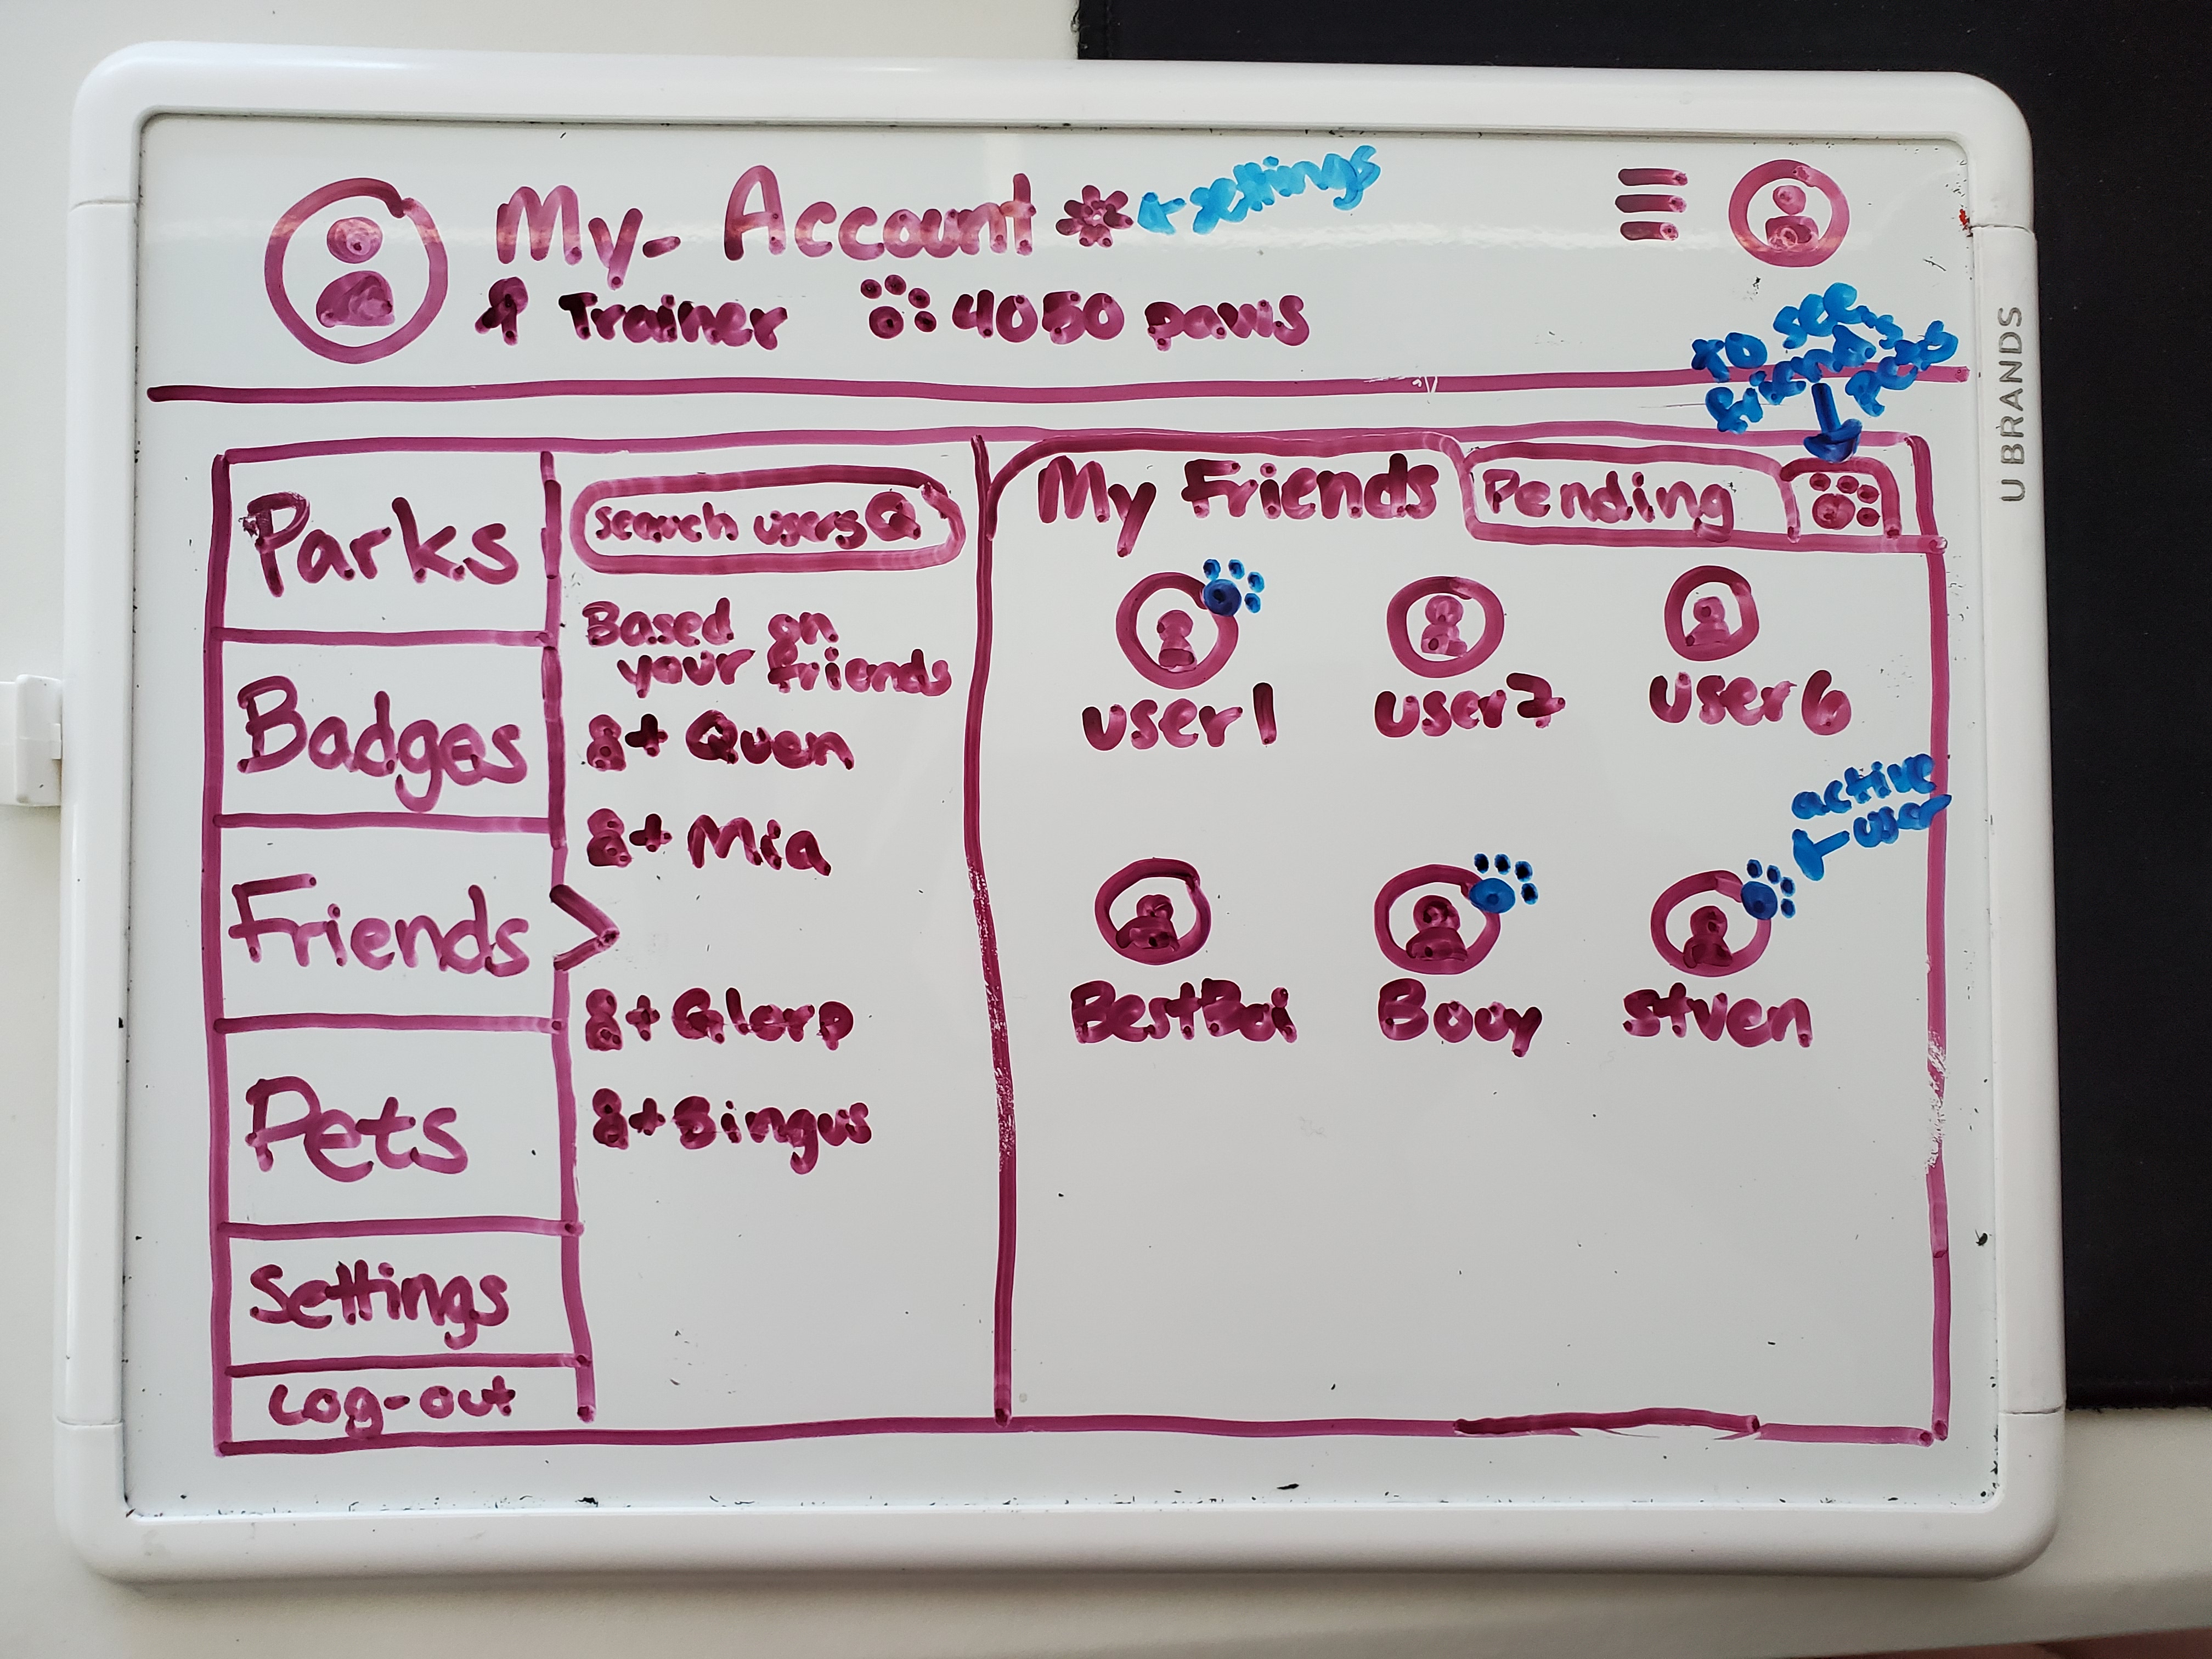 My- Account
settings
Trainer
4050 paws
to see
friends
pets
U BRANDS
Parks
Badges
Friends
Pets
Settings
Log-out
search users
Based on
your friends
+ Quen
+ Mia
+ Glorp
+ Bingus
My Friends
Pending
user1
user7
user6
active
user
BestBoi
Booy
stven